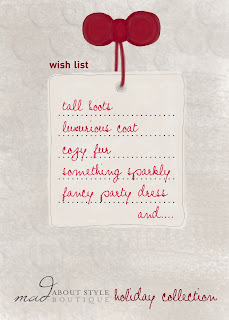 wish list
tall boots
luxurious coat
cozy fur
something sparkly
fancy party dress
and....
mad ABOUT STYLE
BOUTIQUE holiday collection